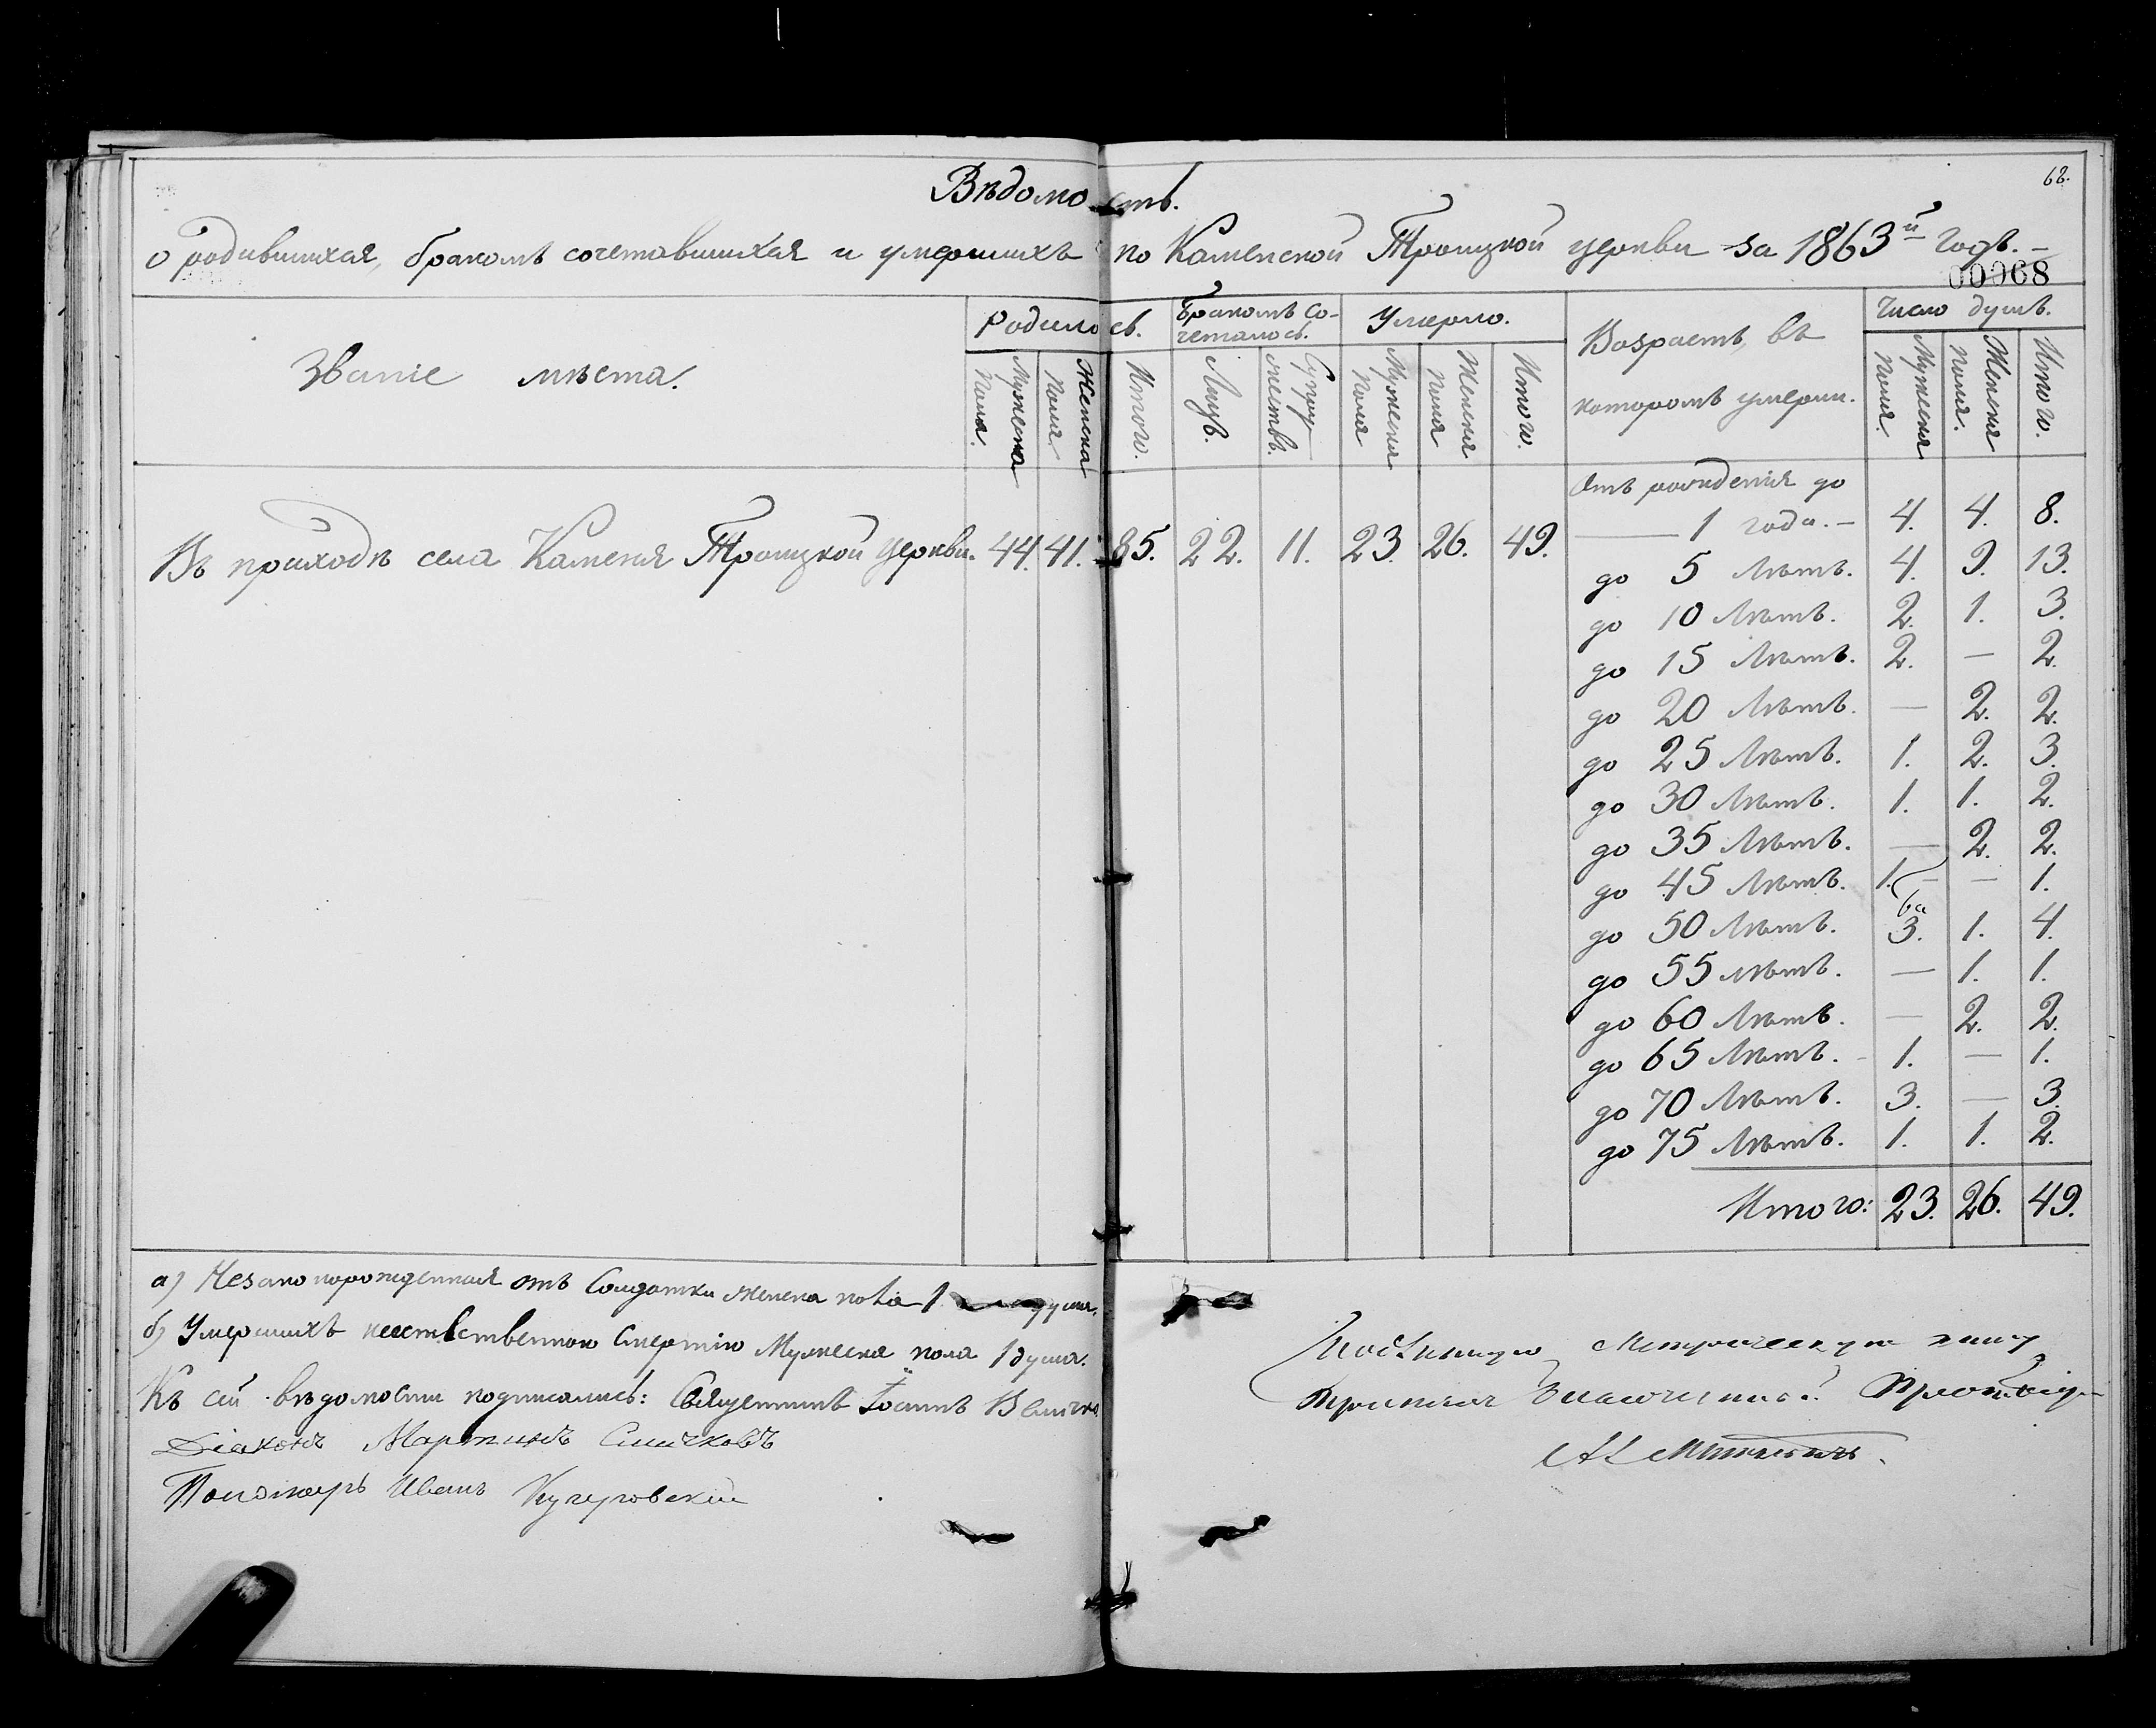 68.
Вѣдомость.
о родившихся, бракомъ сочетавшихся и умершихъ по Каменской Троицкой церкви за 1863й годъ. —
00068
Званіе мѣста.
Родилось.
Бракомъ со-
четалось.
Умерло.
Возрастъ, въ
которомъ умерли.
Число душъ.
Мужеска пола.
Женска пола
Итого.
Лицъ.
Супру-
жествъ.
Мужеска пола
Женска пола
Итого.
Мужеска пола.
Женска пола.
Итого.
Въ приходѣ села Каменя Троицкой церкви. 44. 41. 85. 22. 11. 23. 26. 49.
Отъ рожденія до
1 года. — 4. 4. 8.
до 5 лѣтъ. 4. 9. 13.
до 10 лѣтъ. 2. 1. 3.
до 15 лѣтъ. 2. — 2.
до 20 лѣтъ. — 2. 2.
до 25 лѣтъ. 1. 2. 3.
до 30 лѣтъ. 1. 1. 2.
до 35 лѣтъ. — 2. 2.
до 45 лѣтъ. 1. — — 1.
до 50 лѣтъ. 3. 1. 4.
до 55 лѣтъ. — 1. 1.
до 60 лѣтъ. — 2. 2.
до 65 лѣтъ. - 1. — 1.
до 70 лѣтъ. 3. — 3.
до 75 лѣтъ. 1. 1. 2.
Итого: 23. 26. 49.
а) Незаконорожденная отъ Солдатки женска пола 1 душа.
б) Умершихъ неестественною смертію Мужеска пола 1 душа.
Къ сей вѣдомости подписались: Священникъ Іоаннъ
Діаконъ Мартинъ
Пономарь Иванъ
Метрическую книгу